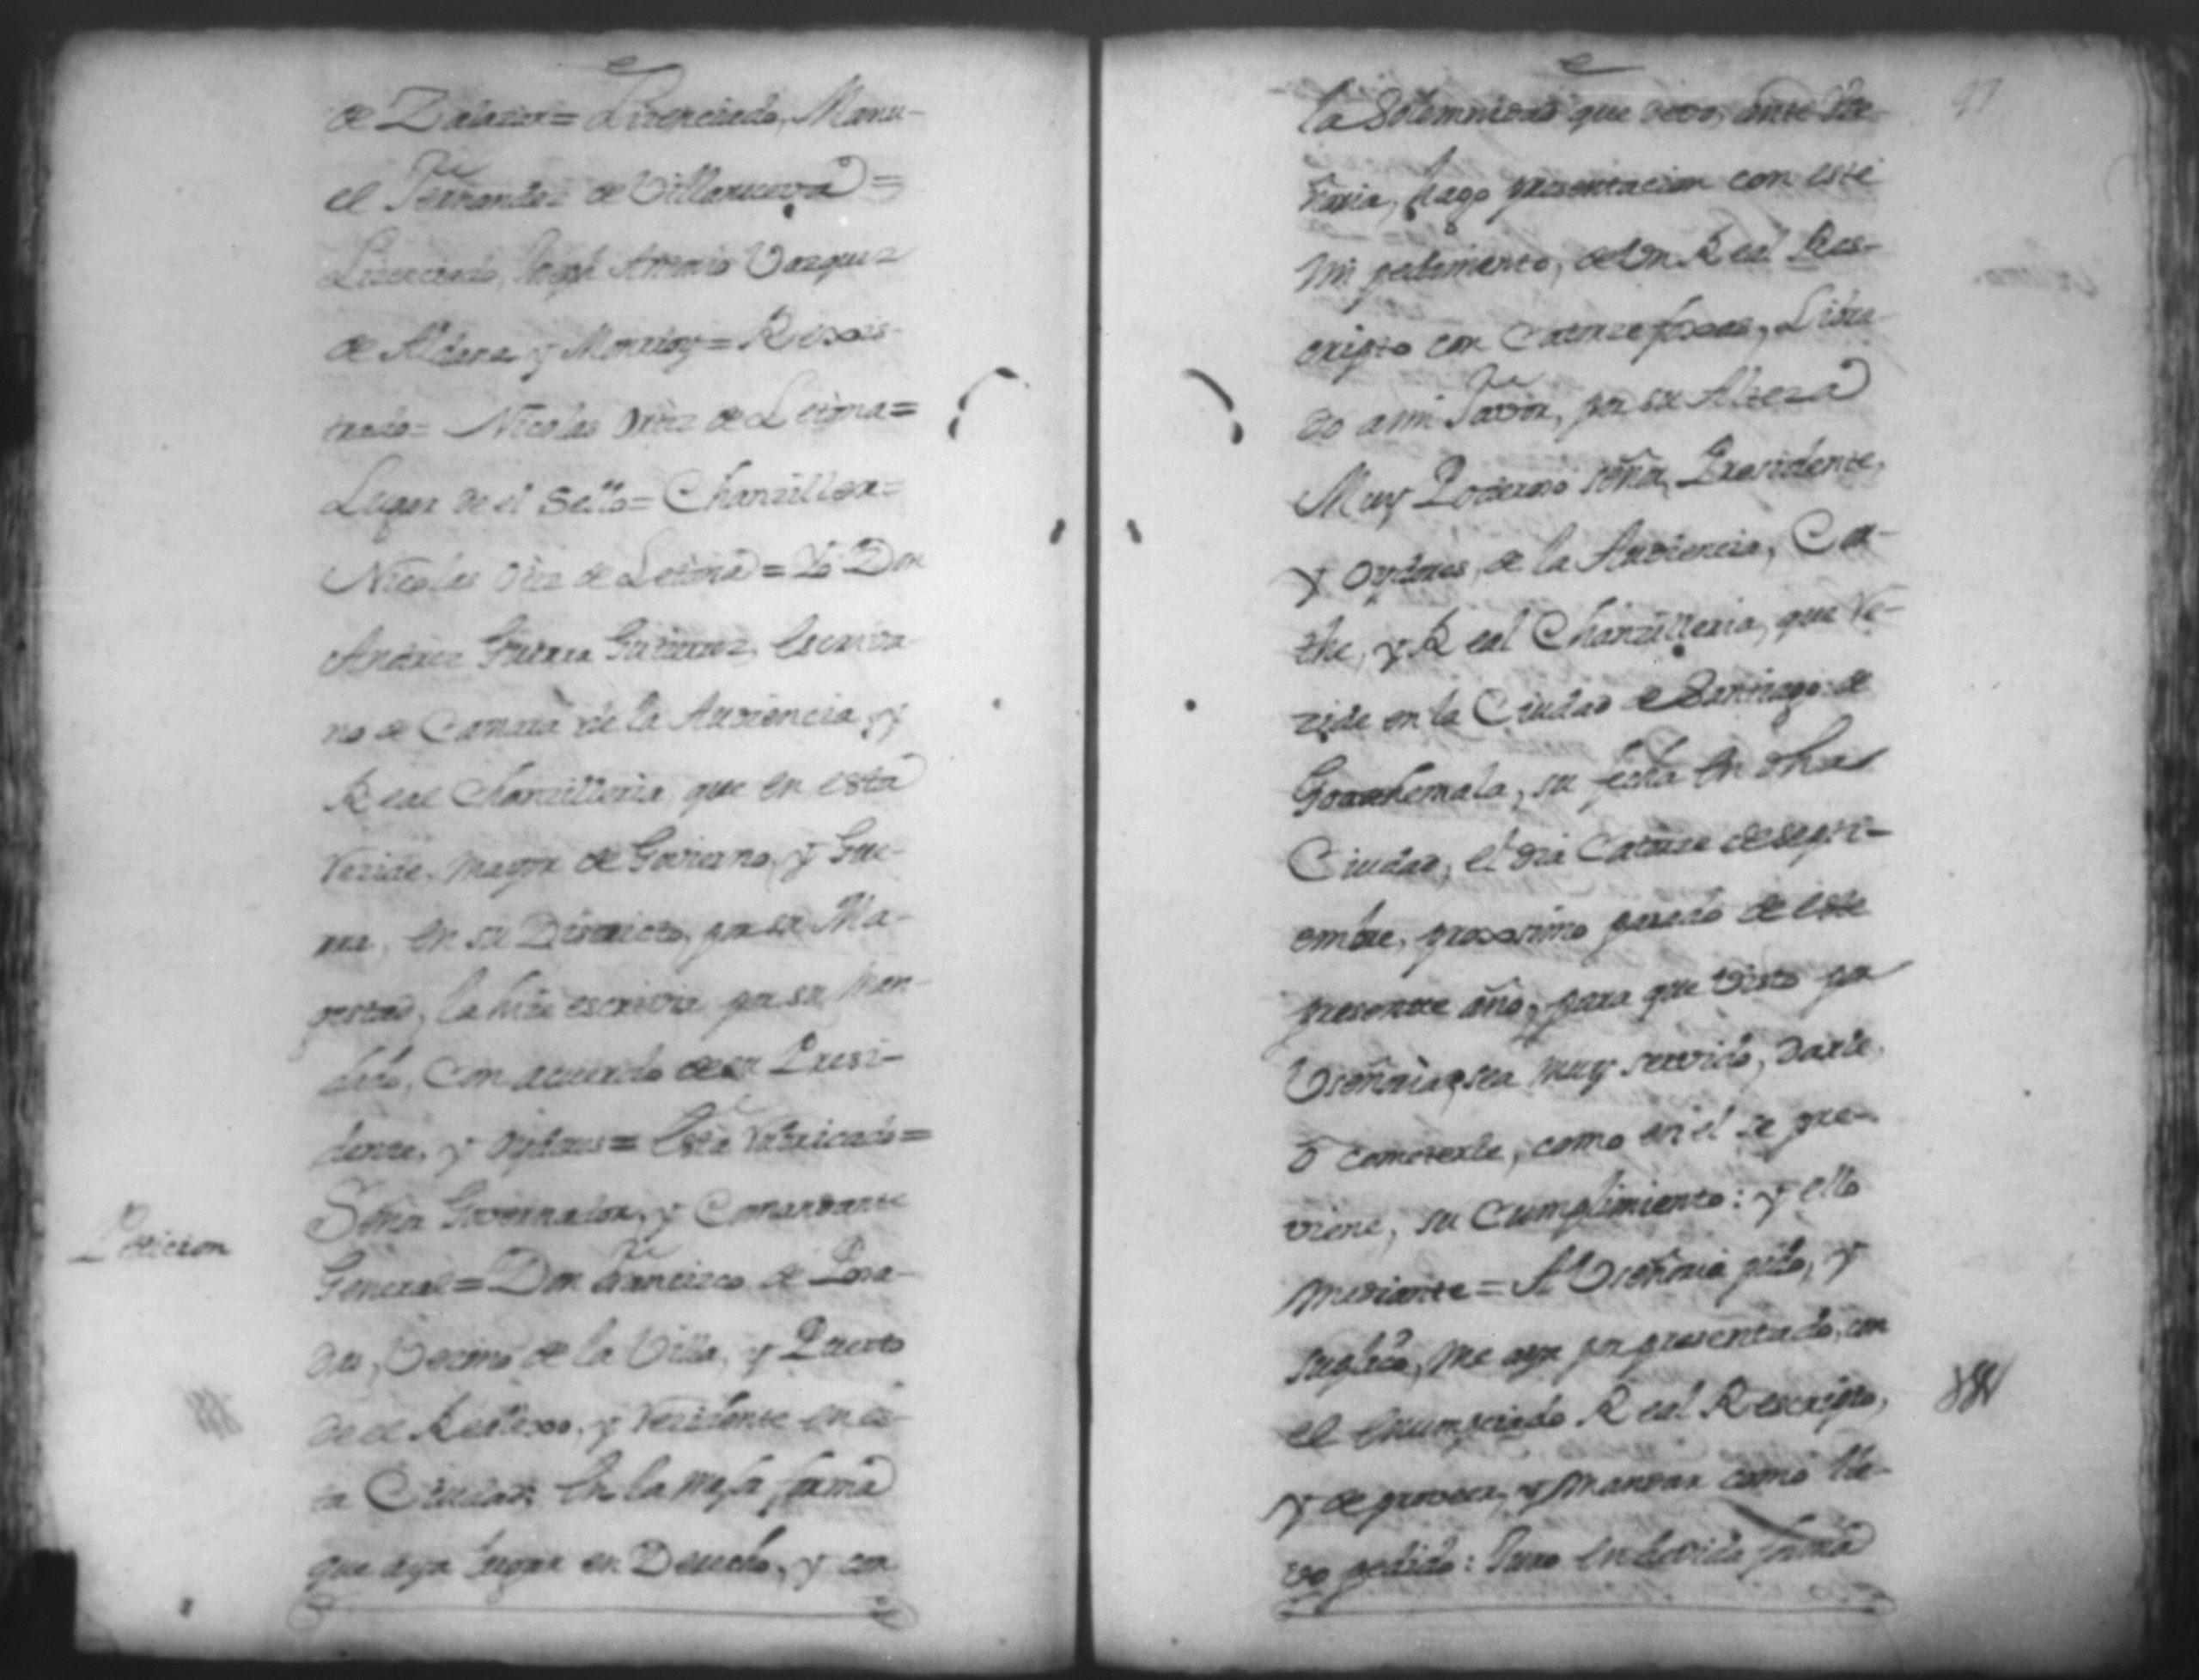 de Zalazar = Licenciado, Manu-
el Fernandez de Villanueva =
Licenciado, Joseph Antonio Vazquez
de Aldana y Monrroy = Rexis-
trado = Nicolas Ortiz de Letona =
Lugar de el Sello = Chanziller =
Nicolas Ortiz de Letona = Yo Don
Andrez Guerra Gutierrez, Escriva-
no de Camara de la Audiencia, y
Real Chanzilleria que en esta
reside, mayor de Govierno, y Gue-
rra, en su Districto, por su Ma-
gestad, la hize escrevir por su man-
dado, Con acuerdo de su Presi-
dente, y oydores = Esta rubricado =
Peticion
Señor Governador, y Comandante
General = Don Francisco de Posa-
da, Vecino de la Villa, y Puerto
de el Realexo, y rezidente en es-
ta Ciudad, en la mejor forma
que aya lugar en Derecho, y con
la Solemnidad que devo, ante Use-
ñoria, hago presentacion con este
mi pedimento, de Un Real Res-
cripto con Catorze foxas, Libra-
do a mi favor, por su Alteza
Muy Poderoso señor, Presidente,
y oydores, de la Audiencia, Cor-
the, y Real Chanzilleria, que re-
zide en la Ciudad de Santiago de
Goathemala, su fecha en dha
Ciudad, el dia Catorze de septi-
embre, proximo pasado de este
presente año, para que visto por
Useñoria, sea muy servido, darle,
ó cometerle, como en el se pre-
viene, su Cumplimiento: y ello
mediante = A Useñoria pido, y
suplico, me aya por presentado, con
el enumpciado Real Rescripto,
y de proveer, y mandar como lle-
vo pedido: Juro en devida forma